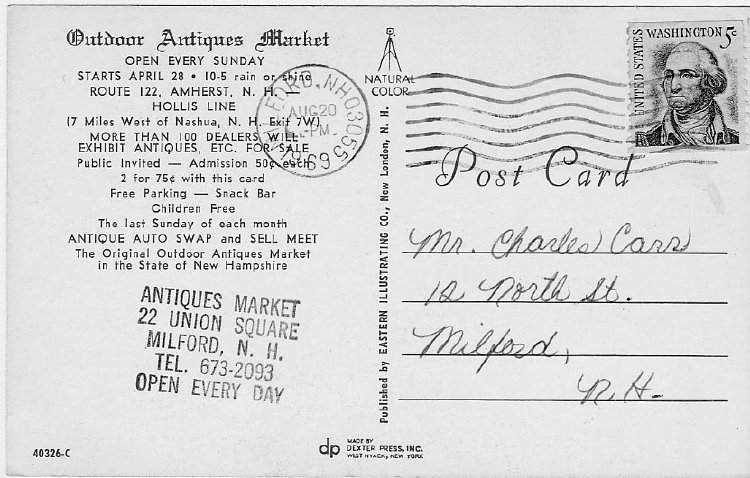 Outdoor Antiques Market
OPEN EVERY SUNDAY
STARTS APRIL 28 • 10-5 rain or shine
ROUTE 122, AMHERST, N. H. —
HOLLIS LINE
(7 Miles West of Nashua, N. H. Exit 7W)
MORE THAN 100 DEALERS WILL
EXHIBIT ANTIQUES, ETC. FOR SALE
Public Invited — Admission 50¢ each
2 for 75¢ with this card
Free Parking — Snack Bar
Children Free
The last Sunday of each month
ANTIQUE AUTO SWAP and SELL MEET
The Original Outdoor Antiques Market
in the State of New Hampshire
ANTIQUES MARKET
22 UNION SQUARE
MILFORD, N. H.
TEL. 673-2093
OPEN EVERY DAY
40326-C
MILFORD, NH 03055
AUG 20
PM
1968
NATURAL
COLOR
Published by EASTERN ILLUSTRATING CO., New London, N. H.
dp
MADE BY
DEXTER PRESS, INC.
WEST NYACK, NEW YORK
UNITED STATES
WASHINGTON 5c
Post Card
Mr. Charles Carr
12 North St.
Milford,
N. H.